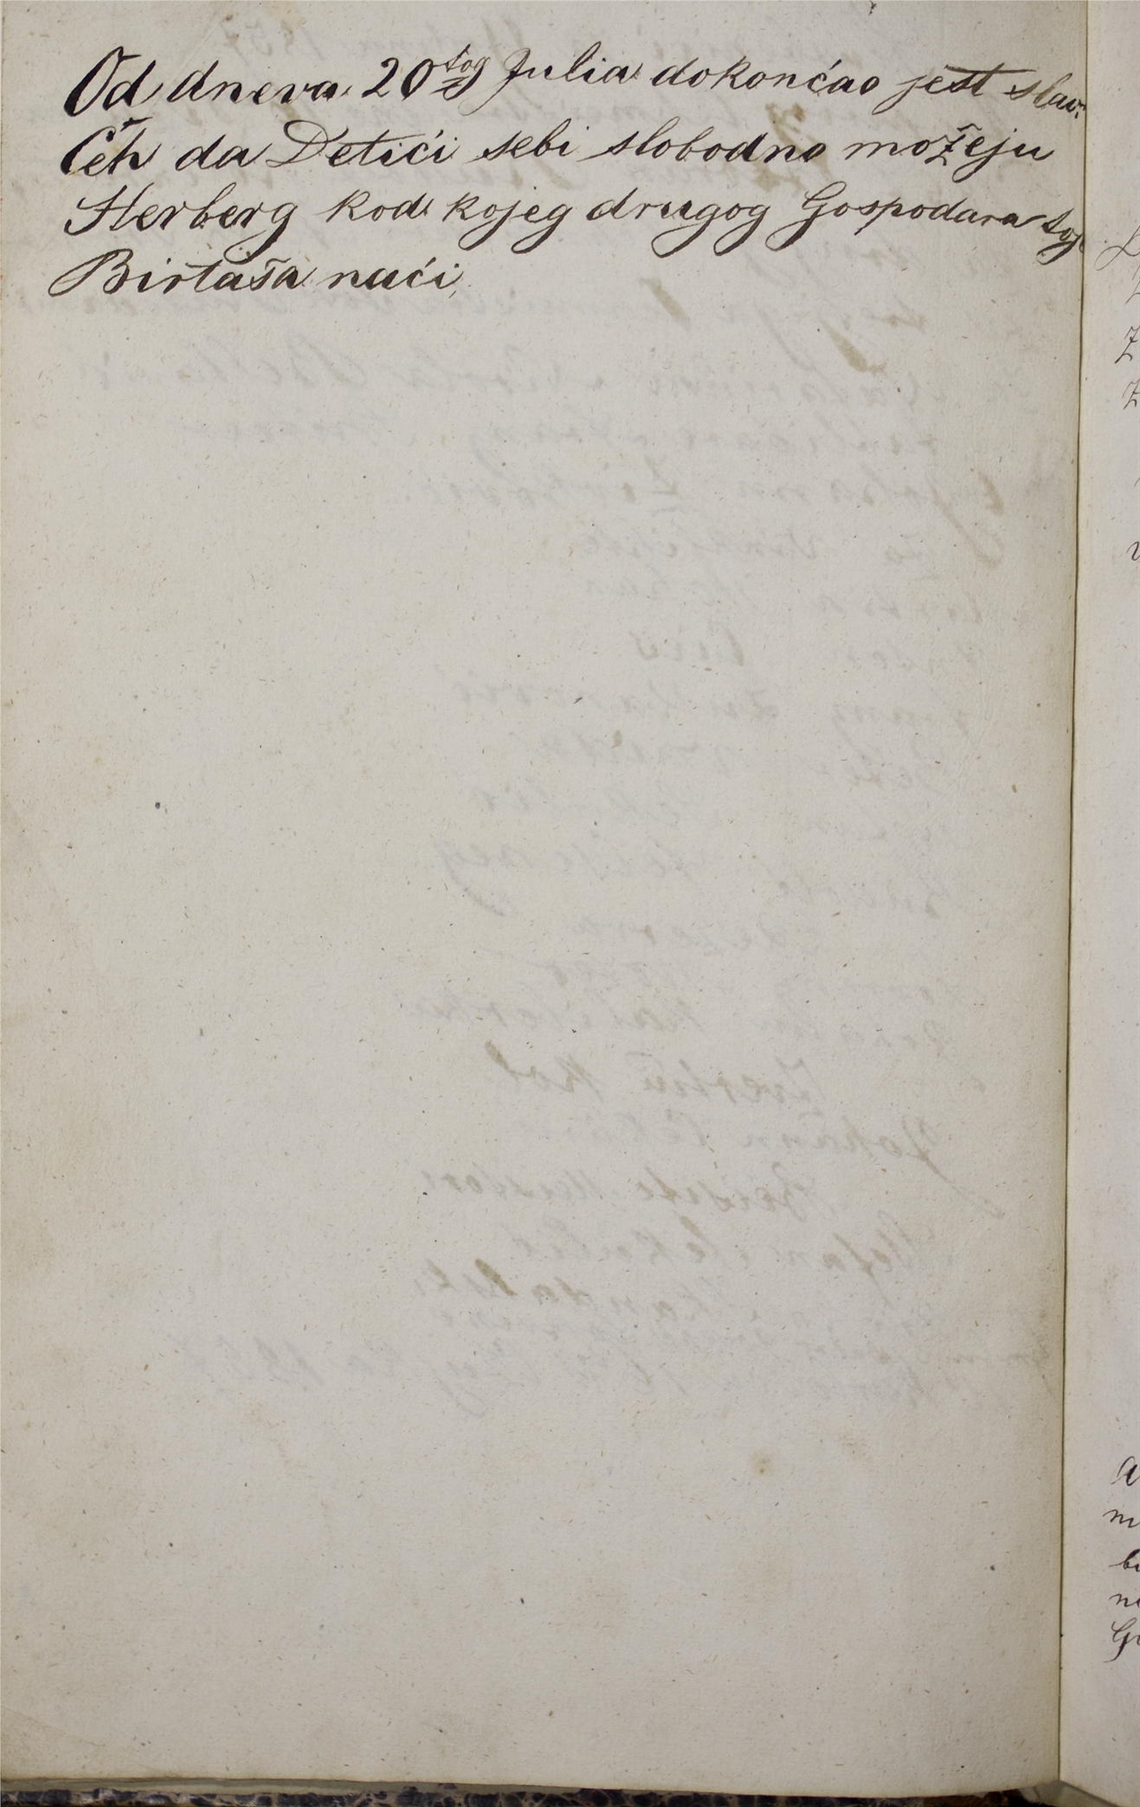 Od dneva 20tog Julia dokonćao jest slav.
Čeh da Detići sebi slobodno možeju
Herberg kod kojeg drugog Gospodara toj
Birtaša naći,